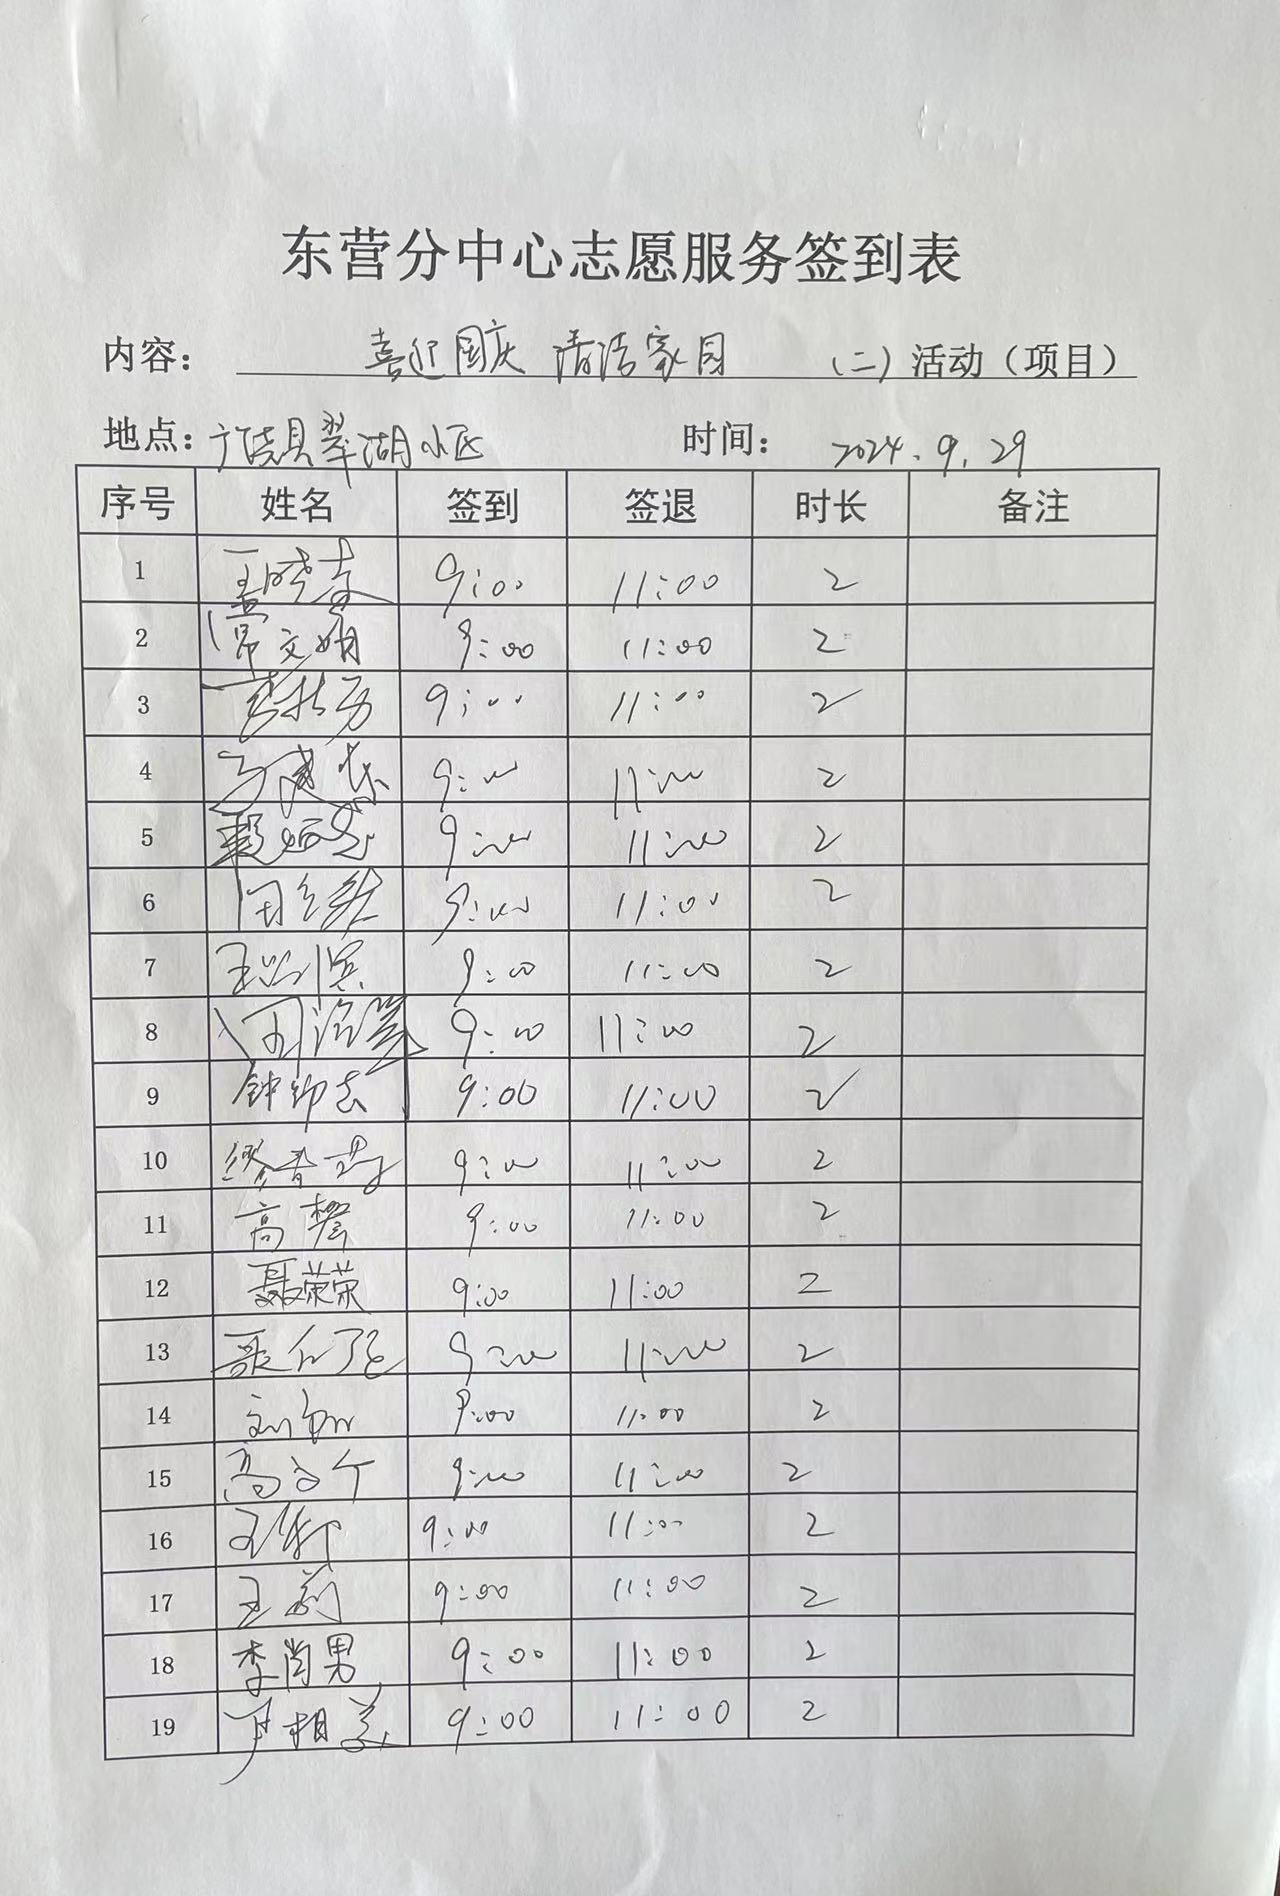 东营分中心志愿服务签到表
内容： 喜迎国庆 清洁家园 （二）活动（项目）
地点：广饶县翠湖小区 时间： 2024.9.29
序号 姓名 签到 签退 时长 备注
1 9:00 11:00 2
2 常文娟 9:00 11:00 2
3 9:00 11:00 2
4 9:00 11:00 2
5 9:00 11:00 2
6 9:00 11:00 2
7 9:00 11:00 2
8 9:00 11:00 2
9 9:00 11:00 2
10 9:00 11:00 2
11 高馨 9:00 11:00 2
12 聂荣荣 9:00 11:00 2
13 9:00 11:00 2
14 9:00 11:00 2
15 9:00 11:00 2
16 9:00 11:00 2
17 王莉 9:00 11:00 2
18 李尚男 9:00 11:00 2
19 尹相美 9:00 11:00 2